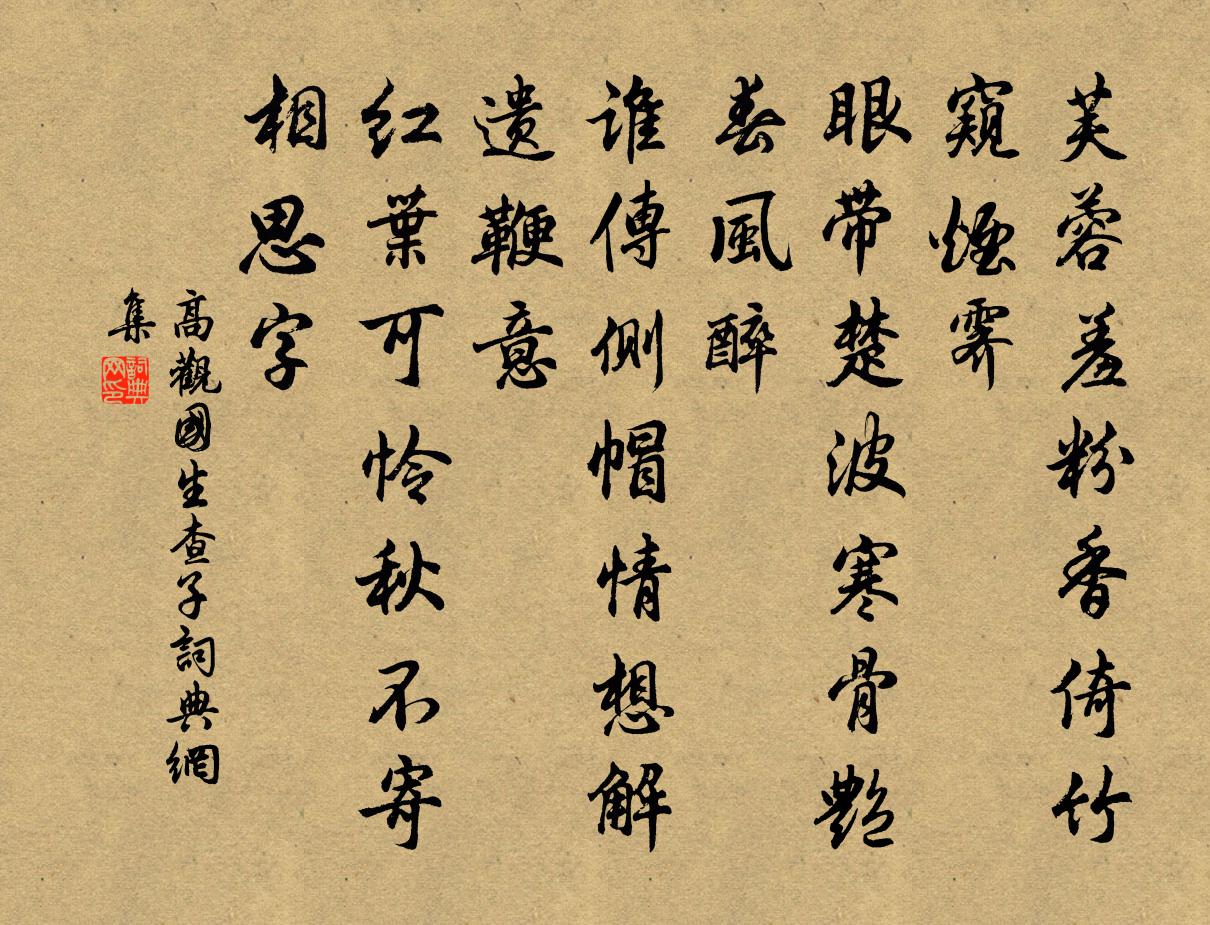 芙蓉羞粉香倚竹
窺煙霽
眼帶楚波寒骨艷
春風醉
誰傳側帽情想解
遺鞭意
紅葉可怜秋不寄
相思字
高觀國生查子詞典網
集
詞典網印